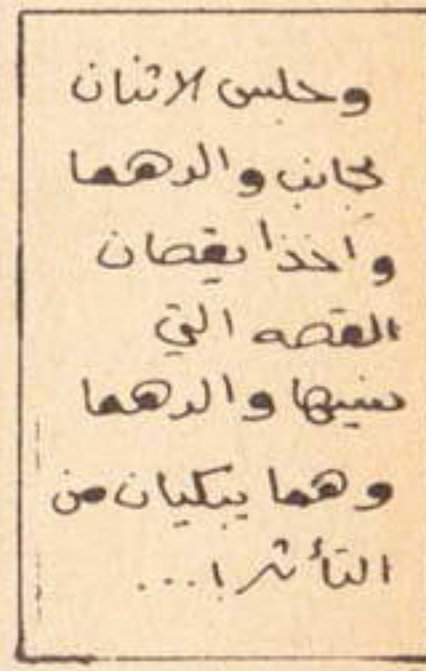 وجلس الاثنان
بجانب والدهما
واخذا يقصان
القصه التي
والدهما
وهما يبكيان من
التأثر!...